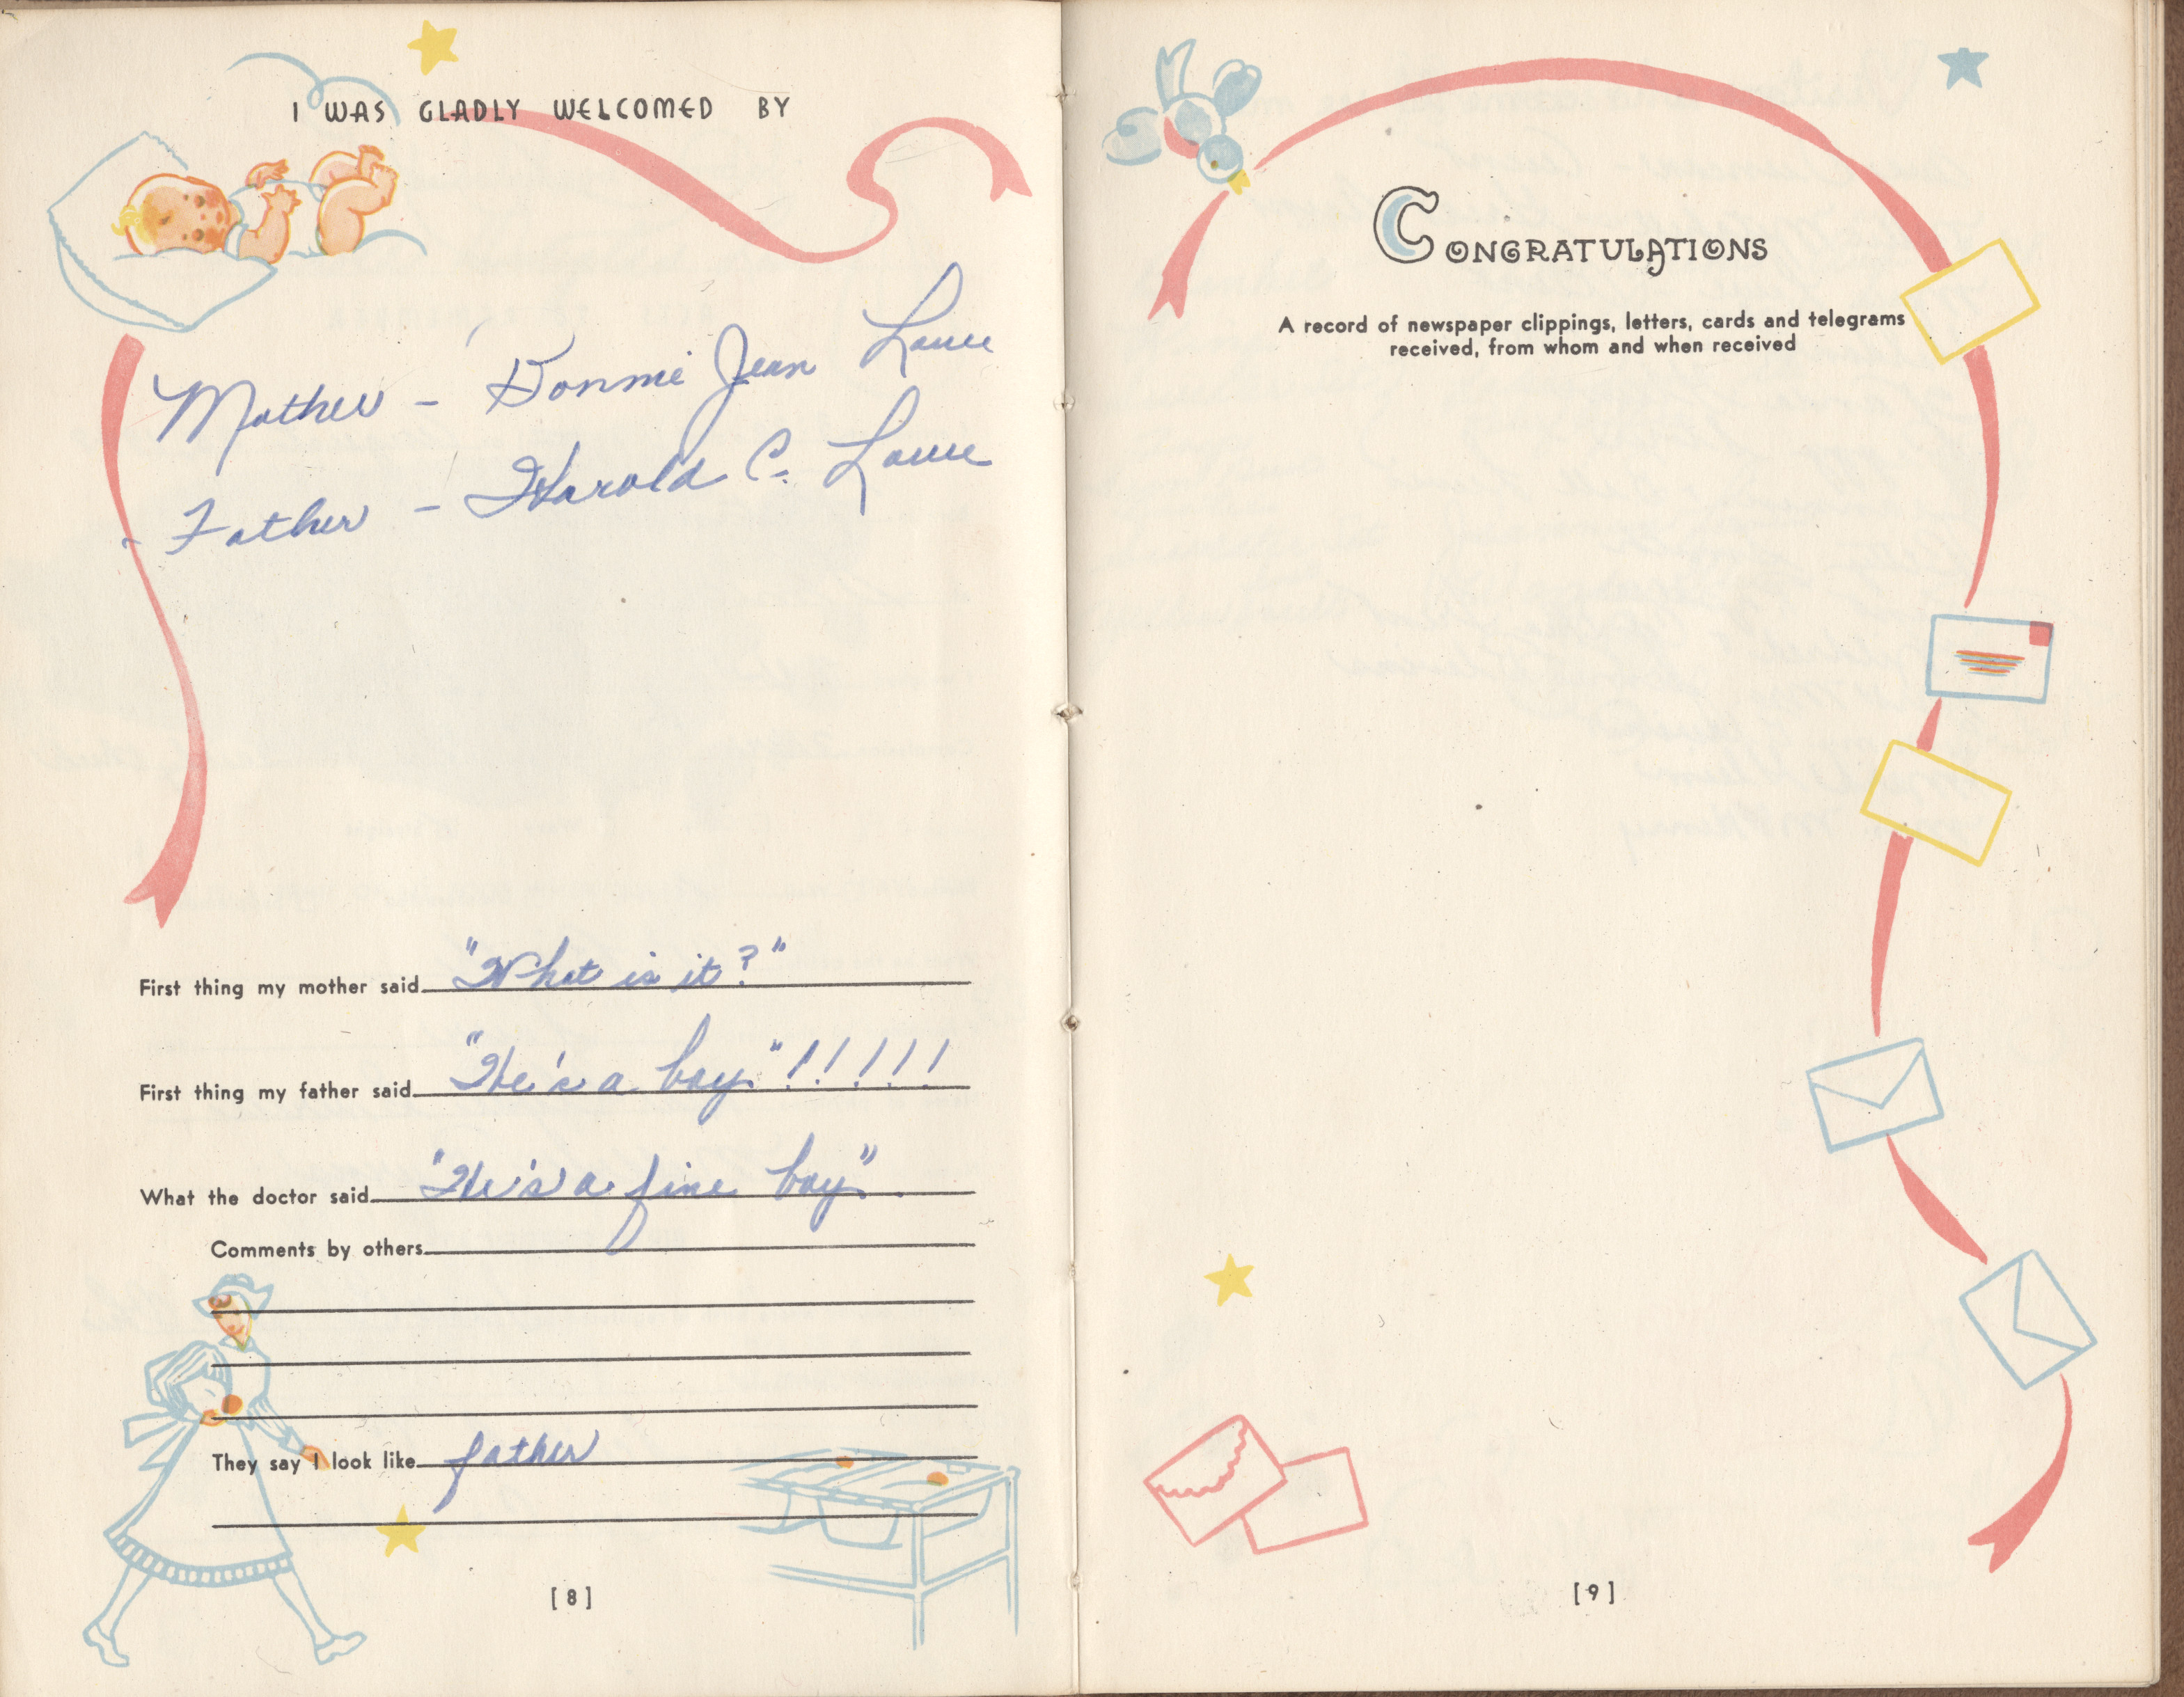 I WAS GLADLY WELCOMED BY
Mother - Donnie Jean
Father - Harold C.
First thing my mother said "What is it?"
First thing my father said "He's a boy."!!!!!
What the doctor said "He's a fine boy".
Comments by others
They say I look like father
[8]
CONGRATULATIONS
A record of newspaper clippings, letters, cards and telegrams
received, from whom and when received
[9]